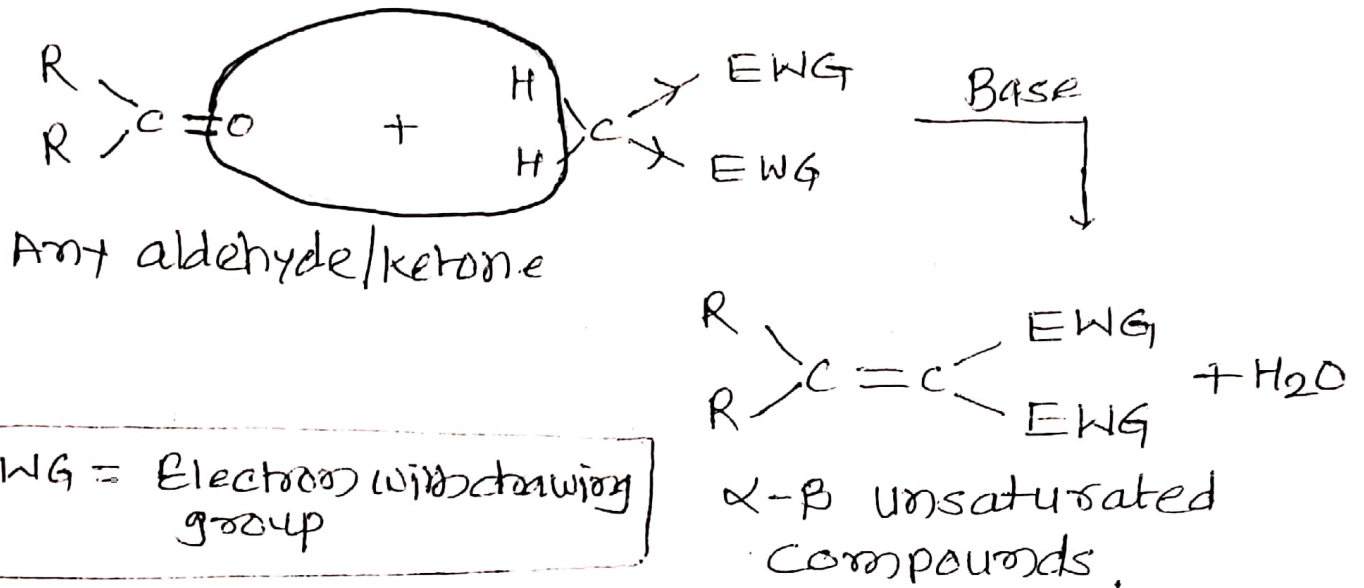 R
R
C=O
+
H
H
C
EWG
EWG
Base
Any aldehyde/ketone
R
R
C=C
EWG
EWG
+ H2O
WG = Electron withdrawing
group
α-β unsaturated
compounds.